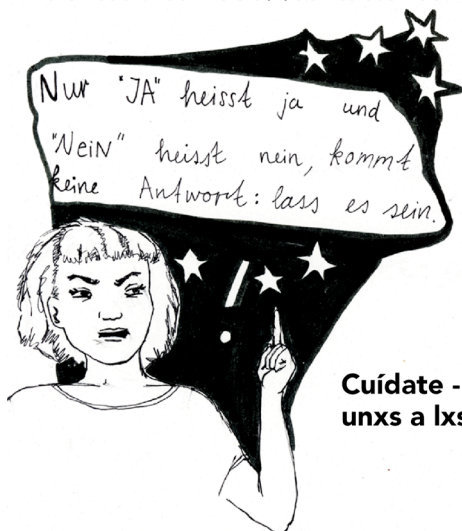 Nur "JA" heisst ja und
"NeiN" heisst nein, kommt
keine Antwort: lass es sein.
!
Cuídate -
unxs a lxs